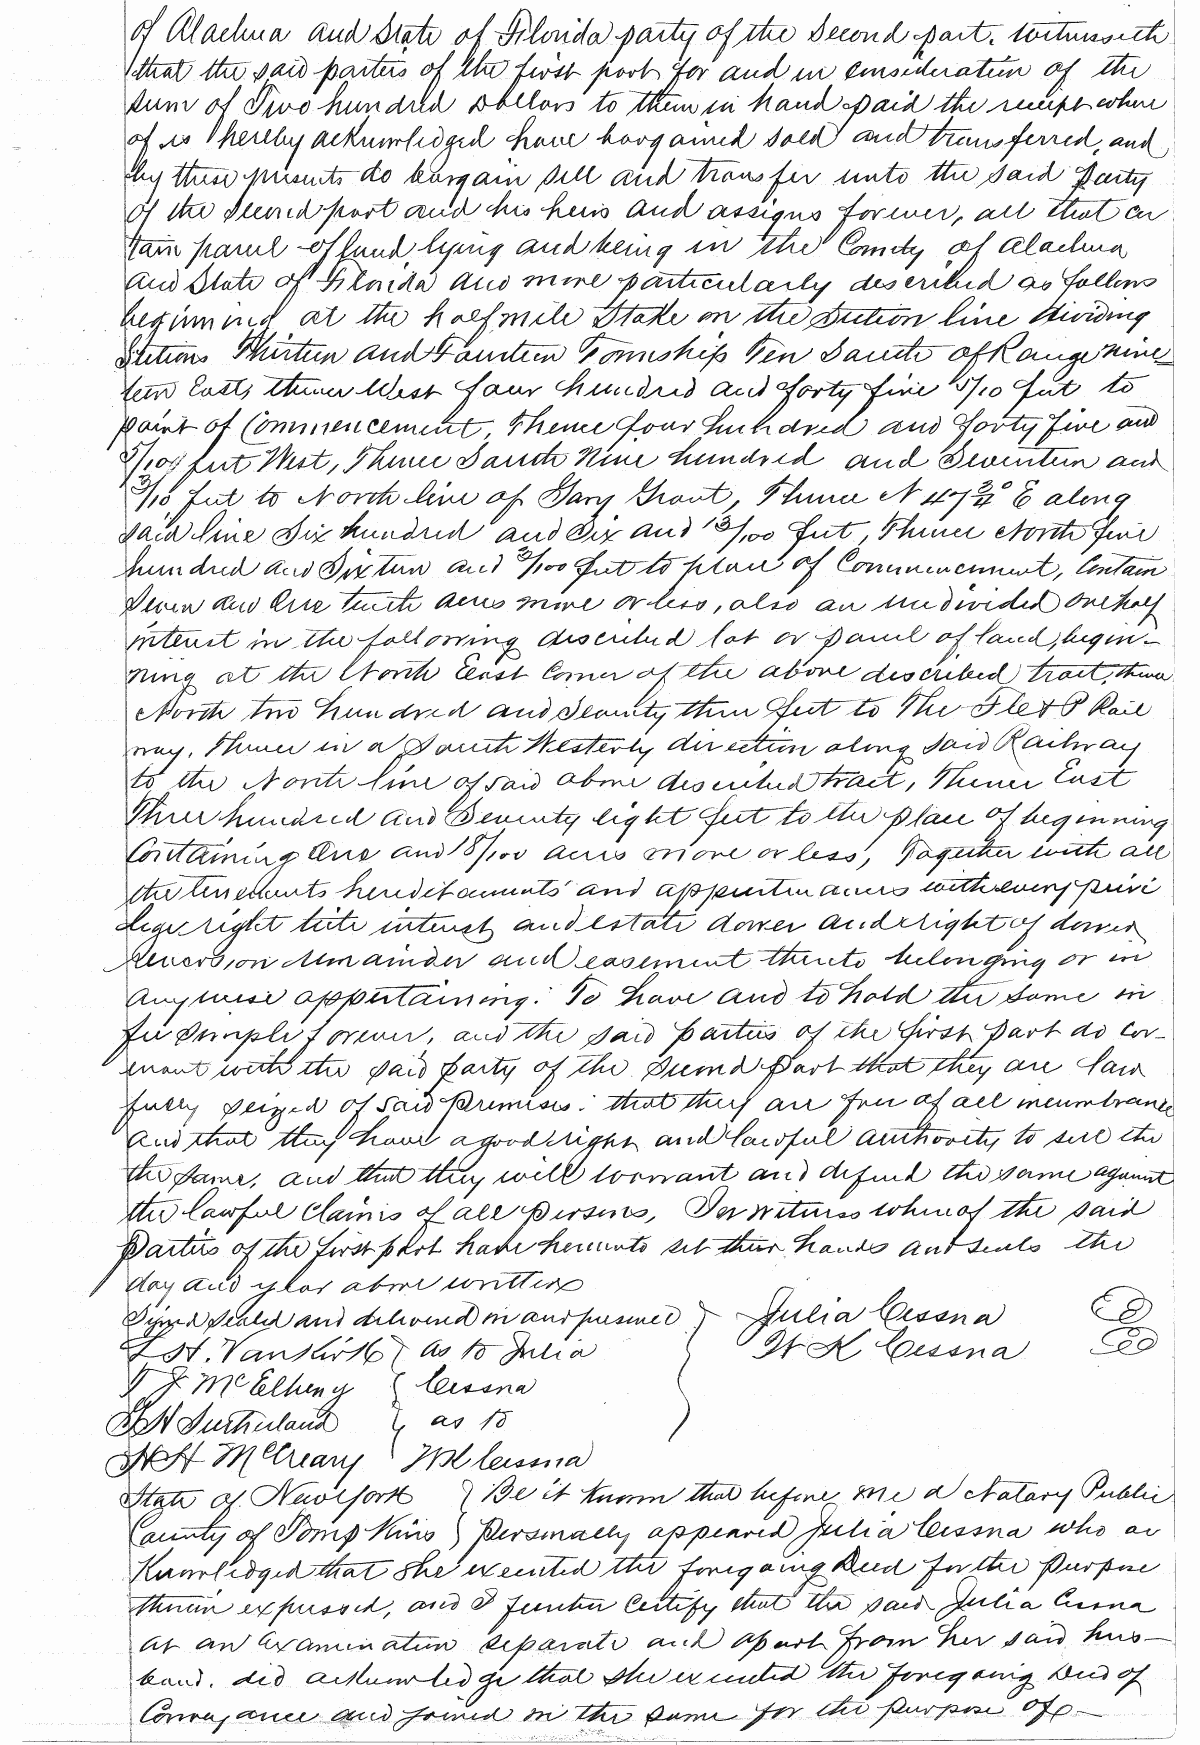 of Alachua and State of Florida party of the Second part. Witnesseth
that the said parties of the first part for and in consideration of the
sum of Two hundred Dollars to them in hand paid the receipt where
of is hereby acknowledged have bargained sold and transferred, and
by these presents do bargain sell and transfer unto the said Party
of the Second part and his heirs and assigns forever, all that cer
tain parcel of land lying and being in the County of Alachua
and State of Florida and more particularly described as follows
beginning at the half mile Stake on the Section line dividing
Sections Thirteen and Fourteen Township Ten South of Range nine
teen East, thence West four hundred and forty five 5/10 feet to
point of Commencement, Thence four hundred and forty five and
5/10 feet West, Thence South Nine hundred and Seventeen and
3/10 feet to North line of Gary Grant, Thence N 47 3/4° E along
said line Six hundred and Six and 13/100 feet, Thence North five
hundred and Sixteen and 3/100 feet to place of Commencement, Contain
Seven and One tenth acres more or less, also an undivided one half
interest in the following described lot or parcel of land, begin-
ning at the North East Corner of the above described tract, thence
North two hundred and Seventy three feet to The F C & P Rail
way. Thence in a South Westerly direction along said Railway
to the North line of said above described tract, Thence East
Three hundred and Seventy eight feet to the place of beginning
Containing One and 18/100 acres more or less, Together with all
the tenements hereditaments and appurtenances with every privi
lege right title interest and estate dower and right of dower
reversion remainder and easement thereto belonging or in
anywise appertaining: To have and to hold the same in
fee simple forever, and the said parties of the first part do cov-
enant with the said party of the Second part that they are law
fully seized of said Premises: that they are free of all incumbrance
and that they have a good right and lawful authority to sell the
the same, and that they will warrant and defend the same against
the lawful claims of all persons, In witness whereof the said
Parties of the first part have hereunto set their hands and seals the
day and year above written
Signed Sealed and delivered in our presence } Julia Cessna
L H. VanKirk } as to Julia W K Cessna
T J McElheny { Cessna
T H Sutherland } as to
H H McCreary W K Cessna
State of New York } Be it Known that before me a Notary Public
County of Tompkins } Personally appeared Julia Cessna who ac
Knowledged that she executed the foregoing Deed for the Purpose
therein expressed, and I further Certify that the said Julia Cessna
at an Examination separate and apart from her said hus-
band, did acknowledge that she executed the foregoing Deed of
Conveyance and joined in the same for the purpose of-